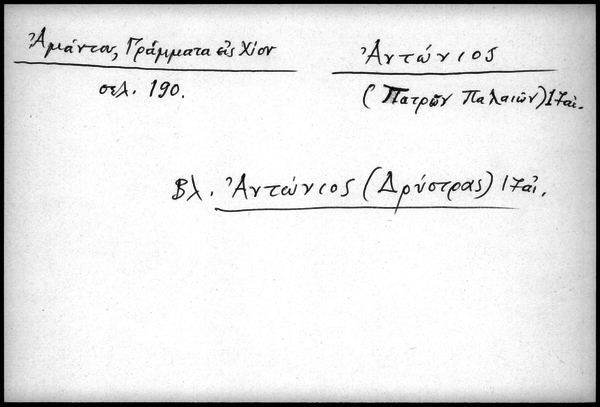 Ἀμάντου, Γράμματα εἰς Χίον
σελ. 190.
Ἀντώνιος
(Πατρῶν Παλαιῶν) 17αἰ.
Βλ. Ἀντώνιος (Δρύστρας) 17αἰ.